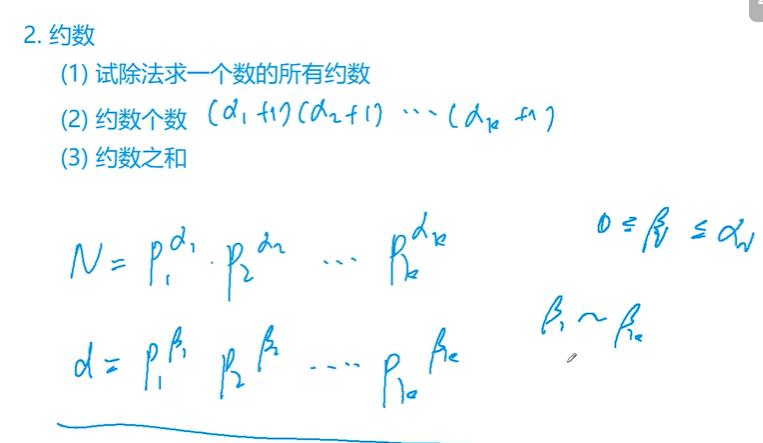 2. 约数
(1) 试除法求一个数的所有约数
(2) 约数个数 (α₁+1)(α₂+1) ⋯ (αₖ+1)
(3) 约数之和
N = p₁^α₁ · p₂^α₂ ⋯ pₖ^αₖ
0 ≤ βᵢ ≤ αᵢ
d = p₁^β₁ p₂^β₂ ⋯ pₖ^βₖ
β₁ ~ βₖ